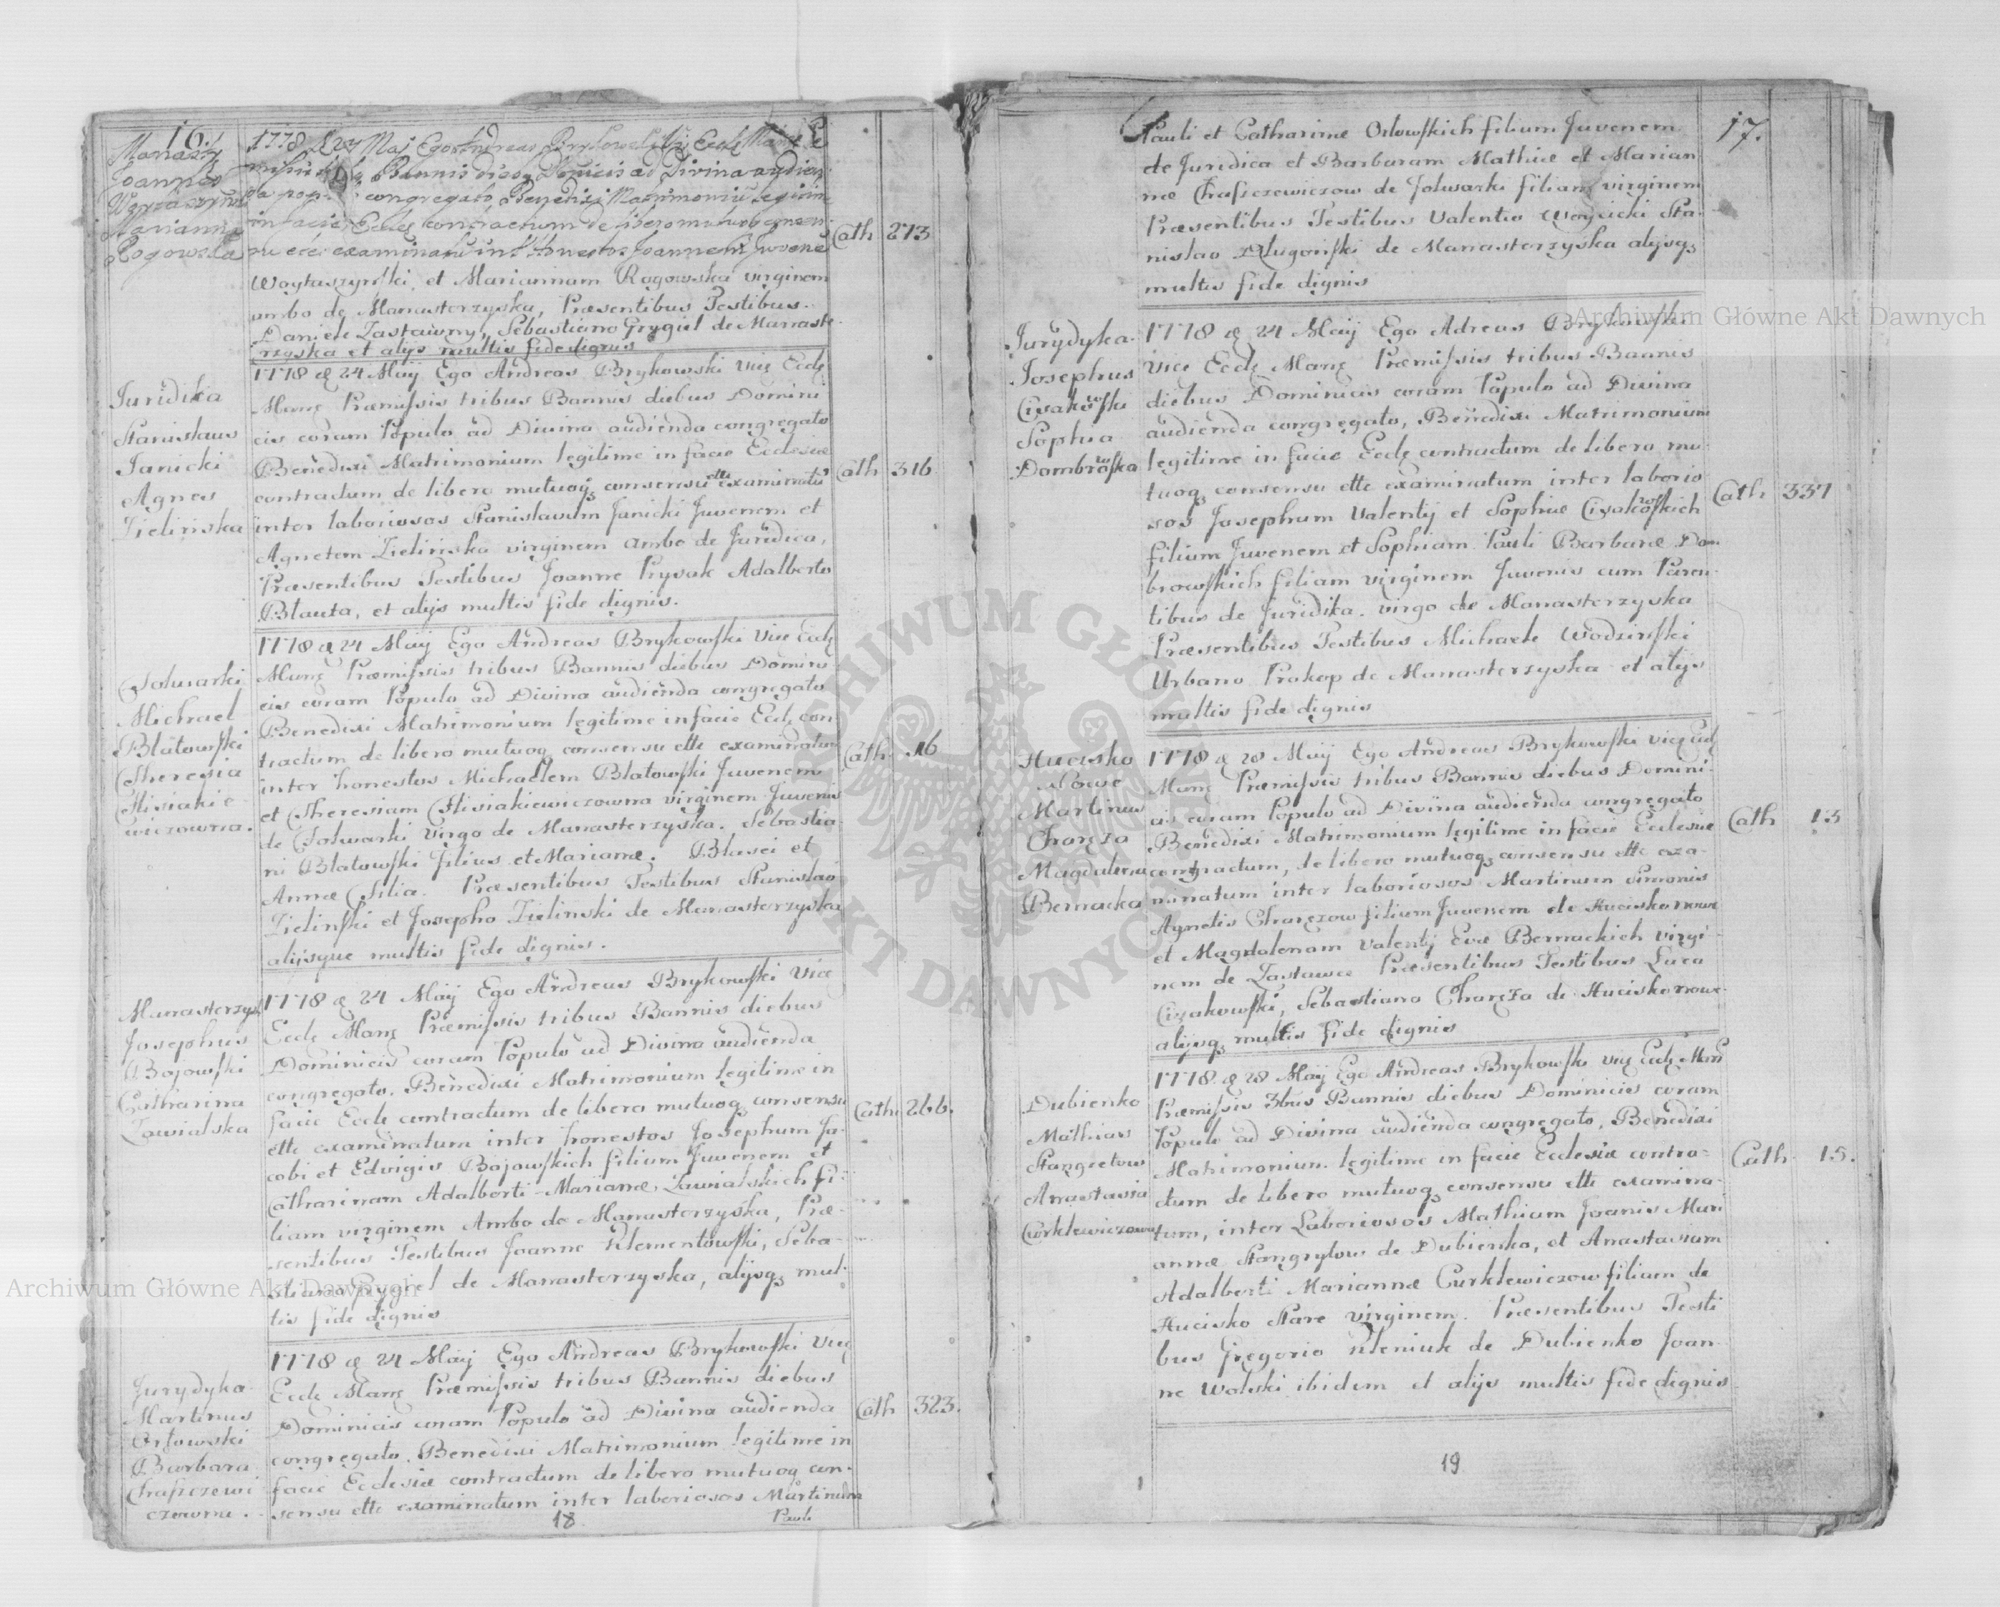 16.
Manasty
Joannes
Woytaszyński
Marianna
Rogowska
1778 d 24 Maj Ego Andreas Brykowski Vic Eccle Mans
Bannis diebus Dominicis ad Divina audien
congregato Benedixi Matrimoniu legitim
in facie Eccles contractum de libero mutuoq consen
examinatu int honestos Joannem Juvene
Woytaszyński, et Mariannam Rogowska virginem
ambo de Manasterzyska, Præsentibus Testibus
Daniele Zastawny, Sebastiano Grygiel de Manaste
rzyska et alijs multis fide dignis
Cath 273
Juridika
Stanislaus
Janicki
Agnes
Zielińska
1778 d 24 Maÿ Ego Andreas Brykowski Vice Eccle
Mans Præmissis tribus Bannis diebus Domini
cis coram Populo ad Divina audienda congregato
Benedixi Matrimonium legitime in facie Ecclesiæ
contractum de libero mutuoq consensu ette examinatū
inter laboriosos Stanislaum Janicki Juvenem et
Agnetem Zielińska virginem ambo de Juridica,
Præsentibus Testibus Joanne Prysak Adalberto
Blauta, et alijs multis fide dignis.
Cath 316
Folwarki
Michael
Blatowski
Theresia
Misiakie
wiczowna.
1778 d 24 Maÿ Ego Andreas Brykowski Vice Eccle
Mans Præmissis tribus Bannis diebus Domini
cis coram Populo ad Divina audienda congregato
Benedixi Matrimonium legitime in facie Eccle con
tractum de libero mutuoq consensu ette examinatum
inter honestos Michaelem Blatowski Juvenem
et Theresiam Misiakiewiczowna virginem Juvenis
de Folwarki Virgo de Manasterzyska. Sebastia
ni Blatowski filius et Marianæ. Blasei et
Annæ filia. Præsentibus Testibus Stanislao
Zielinski et Josepho Zielinski de Manasterzyska
alijsque multis fide dignis.
Cath 16
Manasterzys
Josephus
Bojowski
Catharina
Zawialska
1778 d 24 Maÿ Ego Andreas Brykowski Vice
Eccle Mans Præmissis tribus Bannis diebus
Dominicis coram Populo ad Divina audienda
congregato. Benedixi Matrimonium legitime in
facie Eccle contractum de libero mutuoq consensu
ette examinatum inter honestos Josephum Ja
cobi et Edvigis Bojowskich filium Juvenem et
Catharinam Adalberti Marianæ Zawialskich fi
liam virginem Ambo de Manasterzyska, Præ
sentibus Testibus Joanne Klementowski, Seba
stiano Grygiel de Manasterzyska, alijsq mul
tis fide dignis
Cath 266.
Jurydyka
Martinus
Orłowski
Barbara
Chrapczewi
czowna.
1778 d 24 Maÿ Ego Andreas Brykowski Vice
Eccle Mans Præmissis tribus Bannis diebus
Dominicis coram Populo ad Divina audienda
congregato. Benedixi Matrimonium legitime in
facie Ecclesiæ contractum de libero mutuoq con
sensu ette examinatum inter laboriosos Martinum
Pauli
Cath 323.
18
17.
Pauli et Catharinæ Orlowskich filium Juvenem
de Juridica et Barbaram Mathiæ et Marian
næ Chrapczewiczow de Folwarki filiam virginem
Præsentibus Testibus Valentio Woycicki Sta
nislao Dlugoński de Manasterzyska alijsq
multis fide dignis
Jurydyka
Josephus
Cizakowski
Sophia
Dombrowska
1778 d 24 Maÿ Ego Adreas Brykowski
Vice Eccle Mans Præmissis tribus Bannis
diebus Dominicis coram Populo ad Divina
audienda congregato, Benedixi Matrimonium
legitime in facie Eccle contractum de libero mu
tuoq consensu ette examinatum inter laborio
sos Josephum Valentij et Sophiæ Cizakowskich
filium Juvenem et Sophiam Pauli Barbaræ Dom
browskich filiam virginem Juvenis cum Paren
tibus de Juridika. virgo de Manasterzyska
Præsentibus Testibus Michaele Wodziński
Urbano Prokop de Manasterzyska et alijs
multis fide dignis
Cath 337
Hucisko
Nowe
Martinus
Charęza
Magdalena
Bernacka
1778 d 28 Maÿ Ego Andreas Brykowski Vice Eccle
Mans Præmissis tribus Bannis diebus Domini
cis coram Populo ad Divina audienda congregato
Benedixi Matrimonium legitime in facie Ecclesiæ
contractum, de libero mutuoq consensu ette exa
minatum inter laboriosos Martinum Simonis
Agnetis Charęzow filium Juvenem de Hucisko nowe
et Magdalenam Valentij Evæ Bernackich virgi
nem de Zastawce Præsentibus Testibus Luca
Cizakowski, Sebastiano Charęza de Hucisko nowe
alijsq multis fide dignis
Cath 13
Dubienko
Mathias
Stangretow
Anastasia
Curklewiczowna
1778 d 28 Maÿ Ego Andreas Brykowski Vice Eccle Mans
Præmissis 3bus Bannis diebus Dominicis coram
Populo ad Divina audienda congregato, Benedixi
Matrimonium legitime in facie Ecclesiæ contra
ctum de libero mutuoq consensu ette examina
tum, inter Laboriosos Mathiam Joanis Mari
annæ Stangrytow de Dubienko, et Anastasiam
Adalberti Mariannæ Curklewiczow filium de
Hucisko Stare virginem. Præsentibus Testi
bus Gregorio Oleniuk de Dubienko Joan
ne Wolski ibidem et alijs multis fide dignis
Cath 15.
19
Archiwum Główne Akt Dawnych
Archiwum Główne Akt Dawnych
ARCHIWUM GŁÓWNE AKT DAWNYCH